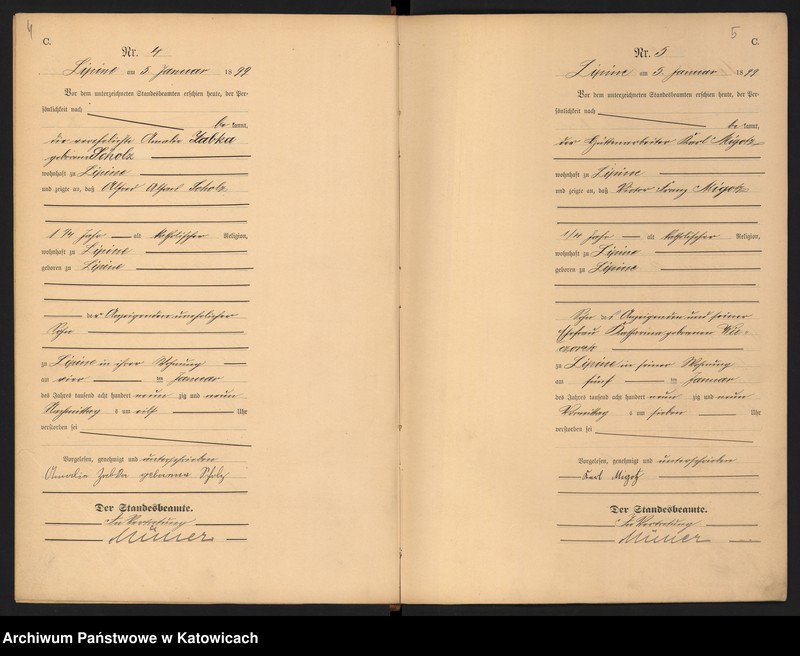 4
C.
Nr. 4
Lipine am 5. Januar 1899
Vor dem unterzeichneten Standesbeamten erschien heute, der Per-
sönlichkeit nach
be kannt,
die verehelichte Amalie Zabka
geborene Scholz
wohnhaft zu Lipine
und zeigte an, daß Alfred Scholz
1 1/4 Jahr alt katholischer Religion,
wohnhaft zu Lipine
geboren zu Lipine
der Anzeigenden unehelicher
Sohn
zu Lipine in ihrer Wohnung
am vier ten Januar
des Jahres tausend acht hundert neun zig und neun
Nachmittag s um elf Uhr
verstorben sei
Vorgelesen, genehmigt und unterschrieben
Amalie Zabka geborene Scholz
Der Standesbeamte.
In Vertretung
Müller
5
C.
Nr. 5
Lipine am 5. Januar 1899
Vor dem unterzeichneten Standesbeamten erschien heute, der Per-
sönlichkeit nach
be kannt,
der Hüttenarbeiter Karl Migotz
wohnhaft zu Lipine
und zeigte an, daß Victor Franz Migotz
1/4 Jahr alt katholischer Religion,
wohnhaft zu Lipine
geboren zu Lipine
Sohn des Anzeigenden und seiner
Ehefrau Katharina geborenen Wie-
czorek
zu Lipine in seiner Wohnung
am fünf ten Januar
des Jahres tausend acht hundert neun zig und neun
Vormittag s um sieben Uhr
verstorben sei
Vorgelesen, genehmigt und unterschrieben
Karl Migotz
Der Standesbeamte.
In Vertretung
Müller
Archiwum Państwowe w Katowicach